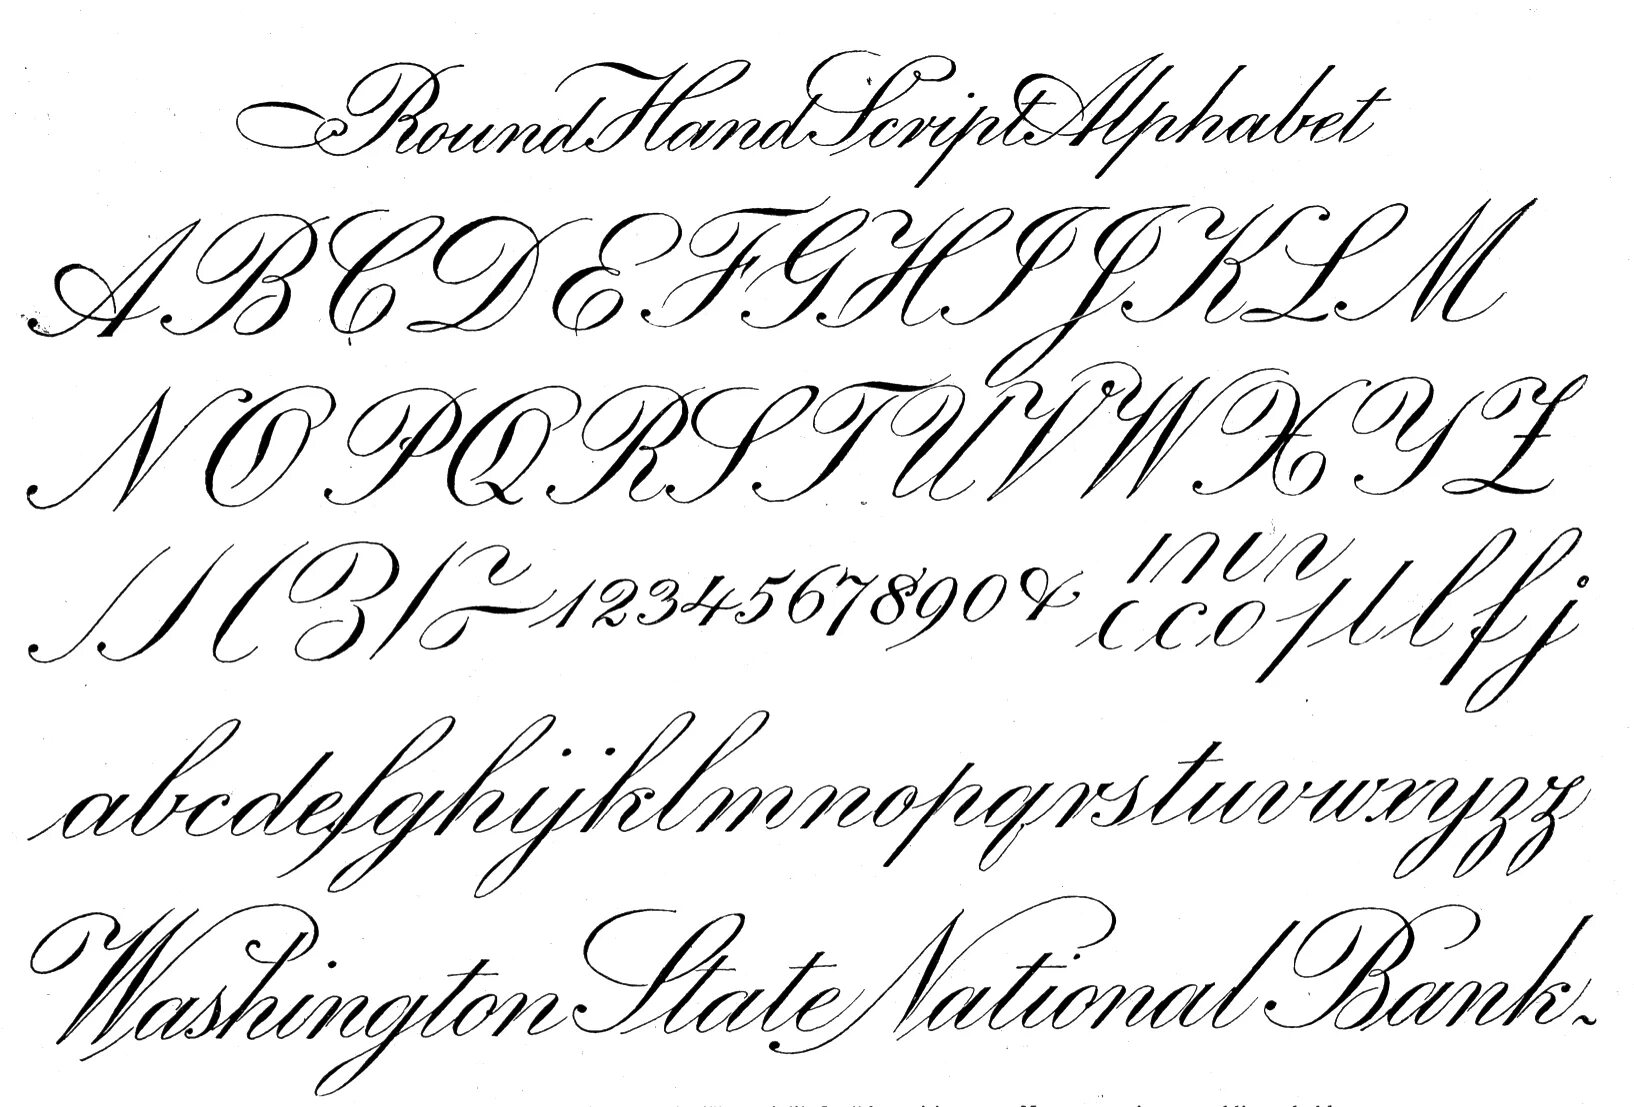 Round Hand Script Alphabet
A B C D E F G H I J K L M
N O P Q R S T U V W X Y Z
1 2 3 4 5 6 7 8 9 0 &
a b c d e f g h i j k l m n o p q r s t u v w x y z z
Washington State National Bank